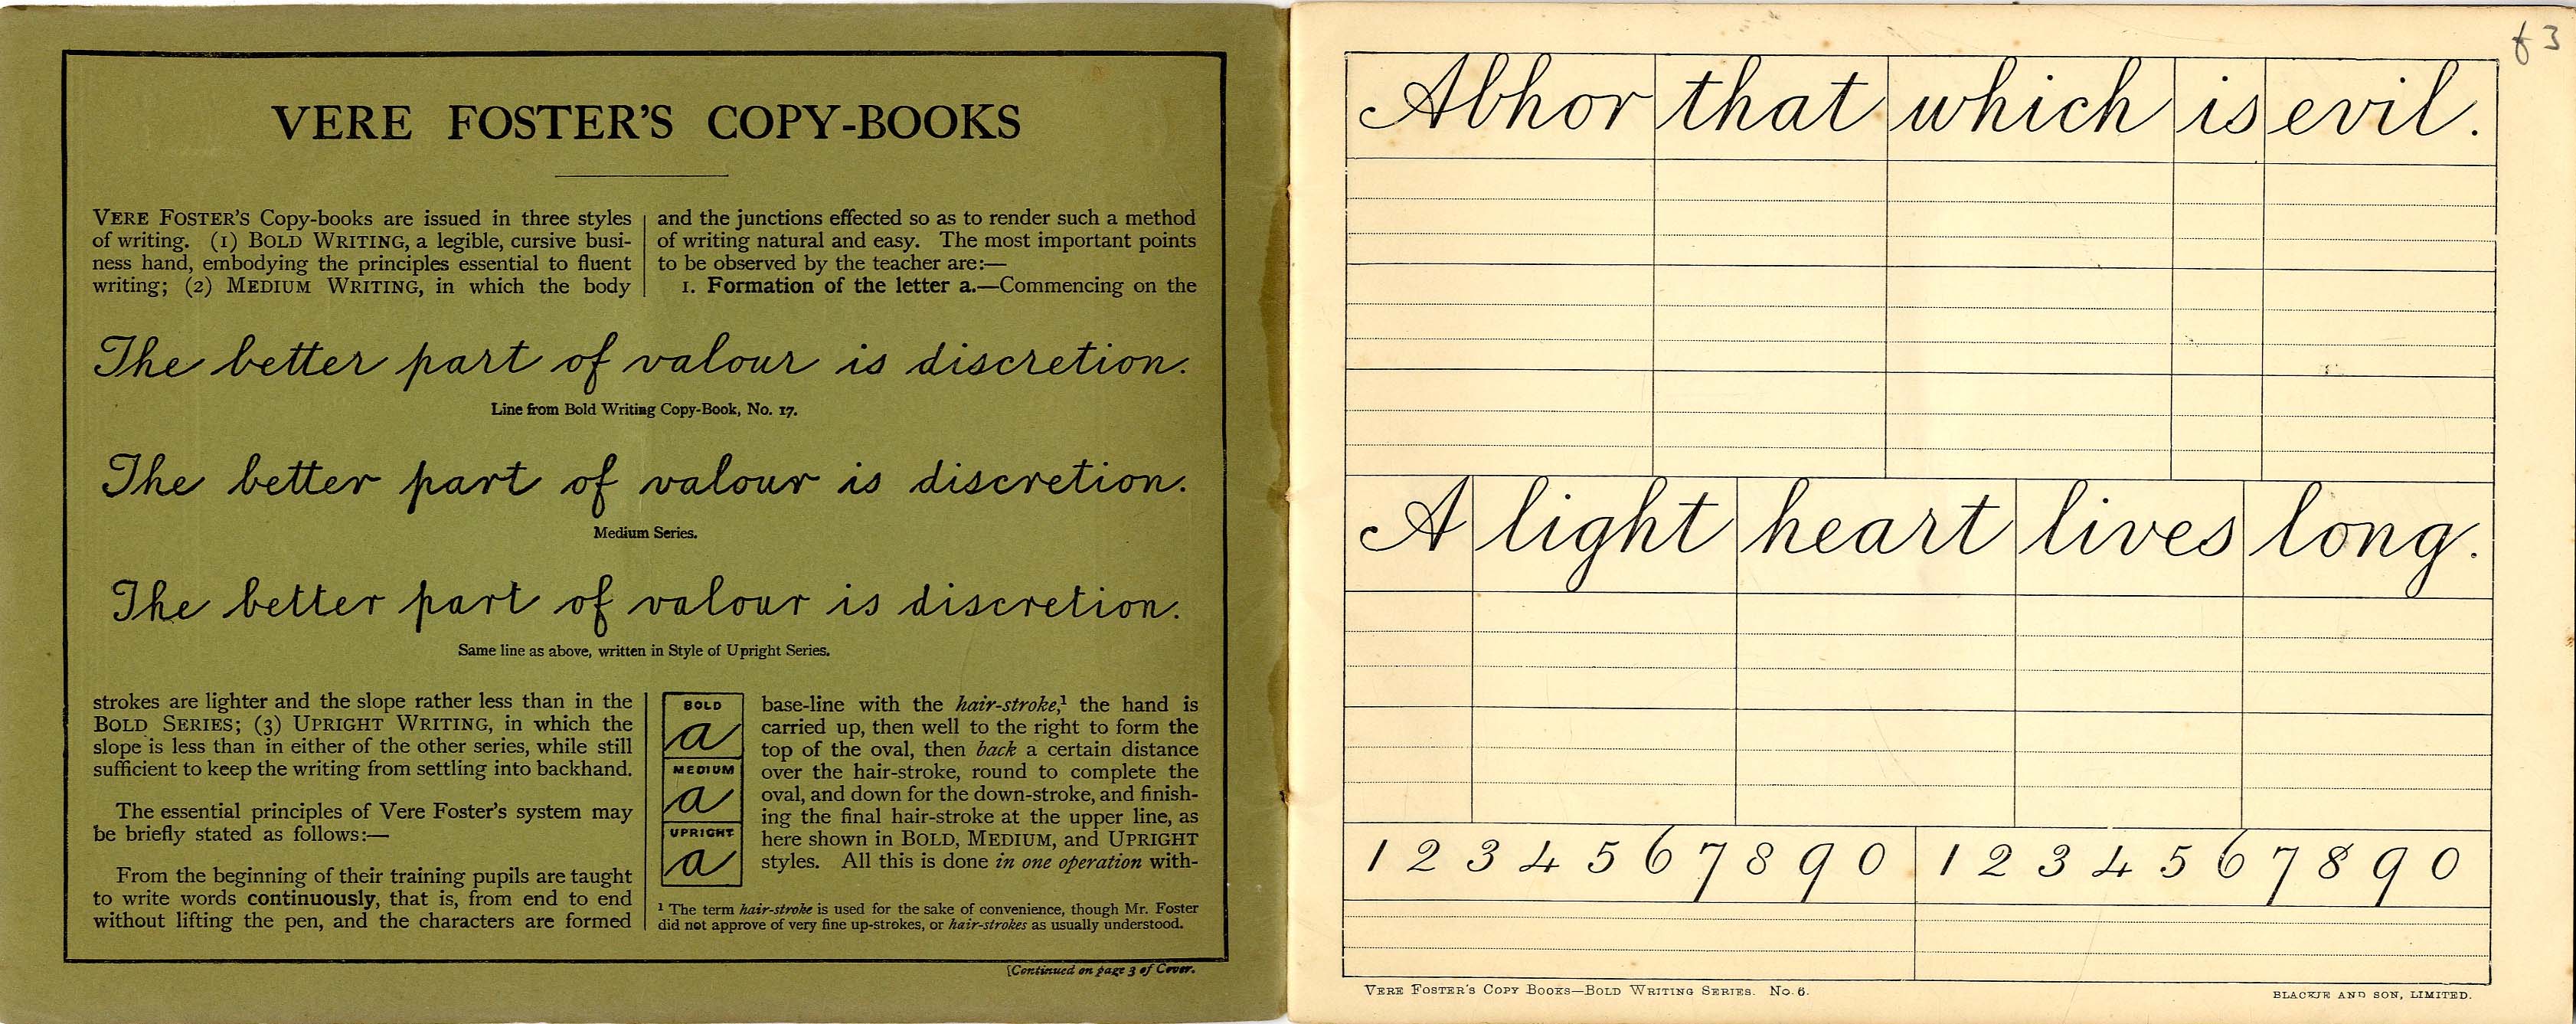 VERE FOSTER'S COPY-BOOKS
VERE FOSTER'S Copy-books are issued in three styles
of writing. (1) BOLD WRITING, a legible, cursive busi-
ness hand, embodying the principles essential to fluent
writing; (2) MEDIUM WRITING, in which the body
and the junctions effected so as to render such a method
of writing natural and easy. The most important points
to be observed by the teacher are:—
1. Formation of the letter a.—Commencing on the
The better part of valour is discretion.
Line from Bold Writing Copy-Book, No. 17.
The better part of valour is discretion.
Medium Series.
The better part of valour is discretion.
Same line as above, written in Style of Upright Series.
strokes are lighter and the slope rather less than in the
BOLD SERIES; (3) UPRIGHT WRITING, in which the
slope is less than in either of the other series, while still
sufficient to keep the writing from settling into backhand.
The essential principles of Vere Foster's system may
be briefly stated as follows:—
From the beginning of their training pupils are taught
to write words continuously, that is, from end to end
without lifting the pen, and the characters are formed
BOLD
a
MEDIUM
a
UPRIGHT
a
base-line with the hair-stroke,¹ the hand is
carried up, then well to the right to form the
top of the oval, then back a certain distance
over the hair-stroke, round to complete the
oval, and down for the down-stroke, and finish-
ing the final hair-stroke at the upper line, as
here shown in BOLD, MEDIUM, and UPRIGHT
styles. All this is done in one operation with-
¹ The term hair-stroke is used for the sake of convenience, though Mr. Foster
did not approve of very fine up-strokes, or hair-strokes as usually understood.
[Continued on page 3 of Cover.
Abhor that which is evil.
A light heart lives long.
1 2 3 4 5 6 7 8 9 0 1 2 3 4 5 6 7 8 9 0
VERE FOSTER'S COPY BOOKS—BOLD WRITING SERIES. No. 6.
BLACKIE AND SON, LIMITED.